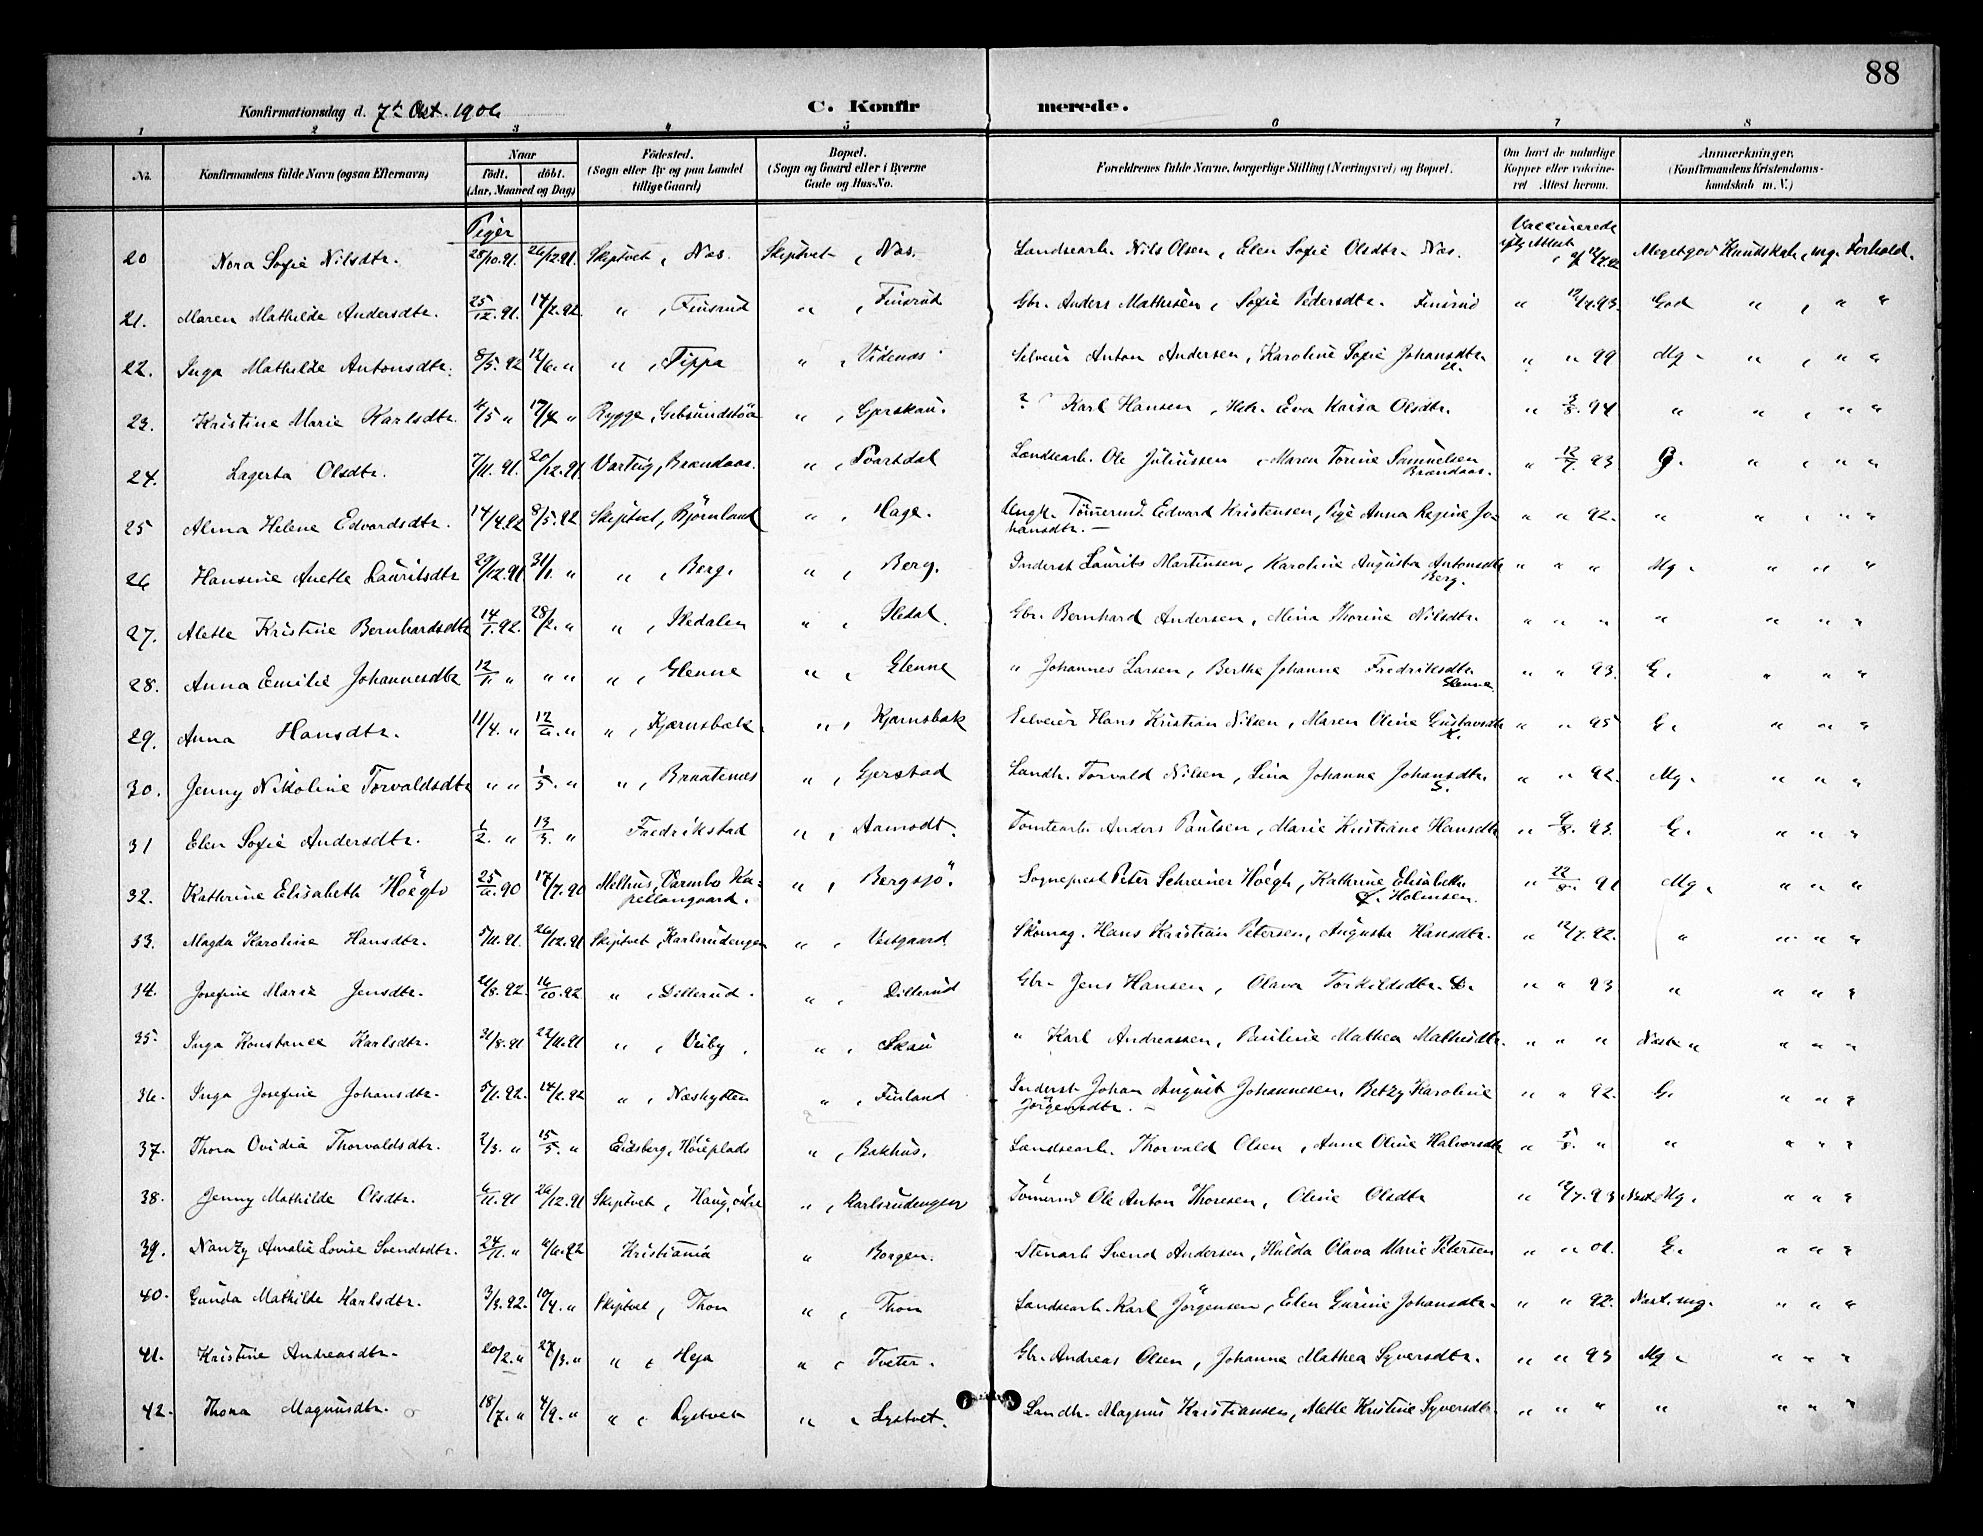 88
Konfirmationsdag d. 7de Okt. 1906 C. Konfirmerede.
1 2 3 4 5 6 7 8
No. Konfirmandens fulde Navn (ogsaa Efternavn) Naar Födt. döbt. (Aar, Maaned og Dag) Födested. (Sogn eller By og paa Landet tillige Gaard) Bopæl. (Sogn og Gaard eller i Byerne Gade og Hus-No. Forældrenes fulde Navne, borgerlige Stilling (Næringsvei) og Bopæl. Om havt de naturlige Kopper eller vakcineret. Attest herom. Anmærkninger. (Konfirmandens Kristendomskundskab m. V.)
Piger Vaccinerede
20 Nora Sofie Nilsdtr. 28/10.91. 26/12.91. Skiptvet, Næs. Skiptvet, Næs. Landsearb. Nils Olsen, Elen Sofie Olsdtr. Næs. Attest af 12/7.92 Megetgod Kundskab, mg. Forhold.
21. Maren Mathilde Andersdtr. 25/12.91. 14/2.92 " , Finsrud " , Finsrud Gbr. Anders Mathisen, Sofie Pedersdtr. Finsrud " 12/7.93. God " , " "
22. Inga Mathilde Antonsdtr. 8/5.92 12/6. " " , Tippa " , Vidends Selveier Anton Andersen, Karoline Sofie Johansdtr. " " 99 Mg. " , " "
23. Kristine Marie Karlsdtr. 6/5 " 17/4 " Rygge, " , Gjerskau. ? Karl Hansen, Hstr. Eva Kaisa Olsdtr. " 3/8. 94 " " , " "
24. Lagerta Olsdtr. 7/11.91. 20/12.91 Varteig, Brændaas. " , Svartdal Landsearb. Ole Juliussen, Maren Torine Samuelsen Brændaas. " 12/7. 93 G. " , " "
25 Alma Helene Edvardsdtr. 14/4.92 8/5.92 Skiptvet, Björnland " , Hage. Ungk. Tömermd. Edvard Kristensen, Pige Anna Regine Jo-
hansdtr. — " " 92. " " , " "
26 Hansine Anette Lauritsdtr 29/12.91 31/1. " " , Berg. " , Berg. Inderst Laurits Martinsen, Karoline Augusta Antonsdtr Berg. " " " Mg. " " "
27. Alette Kristine Bernhardsdtr 14/1.92. 28/2. " " , Iledalen " , Iledal. Gbr. Bernhard Andersen, Mina Thorine Nilsdtr. " " " " " " "
28. Anna Emilie Johannesdtr 12/1 " " " " , Glenne " , Glenne " Johannes Larsen, Berthe Johanne Fredriksdtr. Glenne. " " 93. G. " " "
29. Anna Hansdtr. 11/4. " 12/6. " " , Kjærnsbæk. " , Kjærnsbæk Selveier Hans Kristian Nilsen, Maren Oline Gustavsdtr K. " " 95 G. " " "
30. Jenny Nikoline Torvaldsdtr " " 1/5. " " , Braatenæs " , Gjerstad Landh. Torvald Nilsen, Lina Johanne Johansdtr. " " 92. Mg. " " "
31 Elen Sofie Andersdtr. 1/2. " 13/3. " Fredrikstad " , Aamodt. Tomtearb. Anders Paulsen, Marie Kristiane Hansdtr " 9/8. 93. G. " " "
32. Kathrine Elisabeth Höegh 25/6.90 17/7.90 Melhus, Varmbo Ka-
pellangaard. " , Bergsjö. Sogneprest Peter Schreiner Höegh, Kathrine Elisabeth f. Holmsen. " 22/8. 91 Mg. " " "
33. Magda Karoline Hansdtr. 5/11.91. 26/12.91 Skiptvet, Karlsrudengen " , Vestgaard. Skomag. Hans Kristian Petersen, Augusta Hansdtr. " 12/7.92. " " " "
34. Josefine Marie Jensdtr. 26/8.92. 16/10.92 " , Dillerud. " , Dillerud Gbr. Jens Hansen, Olava Torkildsdtr. D. " " 93 " " " "
35. Inga Konstance Karlsdtr. 31/8.91 22/11.91 " , Viby. " , Skau " Karl Andreassen, Pauline Mathea Mathisdtr. " " " Næste " " " "
36. Inga Josefine Johansdtr. 5/1.92. 14/2.92 " , Næshytten " , Finland Inderst Johan August Johannesen, Betzy Karoline
Jörgensdtr. — " " 92. G. " " "
37. Thora Ovidia Thorvaldsdtr. 2/3. " 15/5. " Eidsberg, Höieplads " , Bakhus. Landsearb. Thorvald Olsen, Anne Oline Halvorsdtr " 5/8. " " " " "
38. Jenny Mathilde Olsdtr. 6/11.91 26/12.91 Skiptvet, Haug, östre " , Karlsrudengen Tömermd Ole Anton Thoresen, Oline Olsdtr " 12/7.93 Næst. Mg. " " "
39. Nanzy Amalie Lovise Svendsdtr. 24/11. " 6/6.92 Kristiania " Borgen. Stenarb. Svend Andersen, Hulda Olava Marie Petersen " " 01. G. " " "
40. Gunda Mathilde Karlsdtr. 3/3.92. 10/4. " Skiptvet, Thon " , Thon Landsearb. Karl Jörgensen, Elen Gurine Johansdtr. " " 92. Næst. mg. " " "
41. Kristine Andreasdtr. 20/2. " 27/3. " " , Heja " , Tveter. Gbr. Andreas Olsen, Johanne Mathea Syversdtr. " " 93 Mg. " " "
42. Thora Magnusdtr. 18/7. " 4/9. " " , Lystvet " , Lystvet. Landh. Magnus Kristiansen, Mette Kristine Syversdtr. " " " " " " "